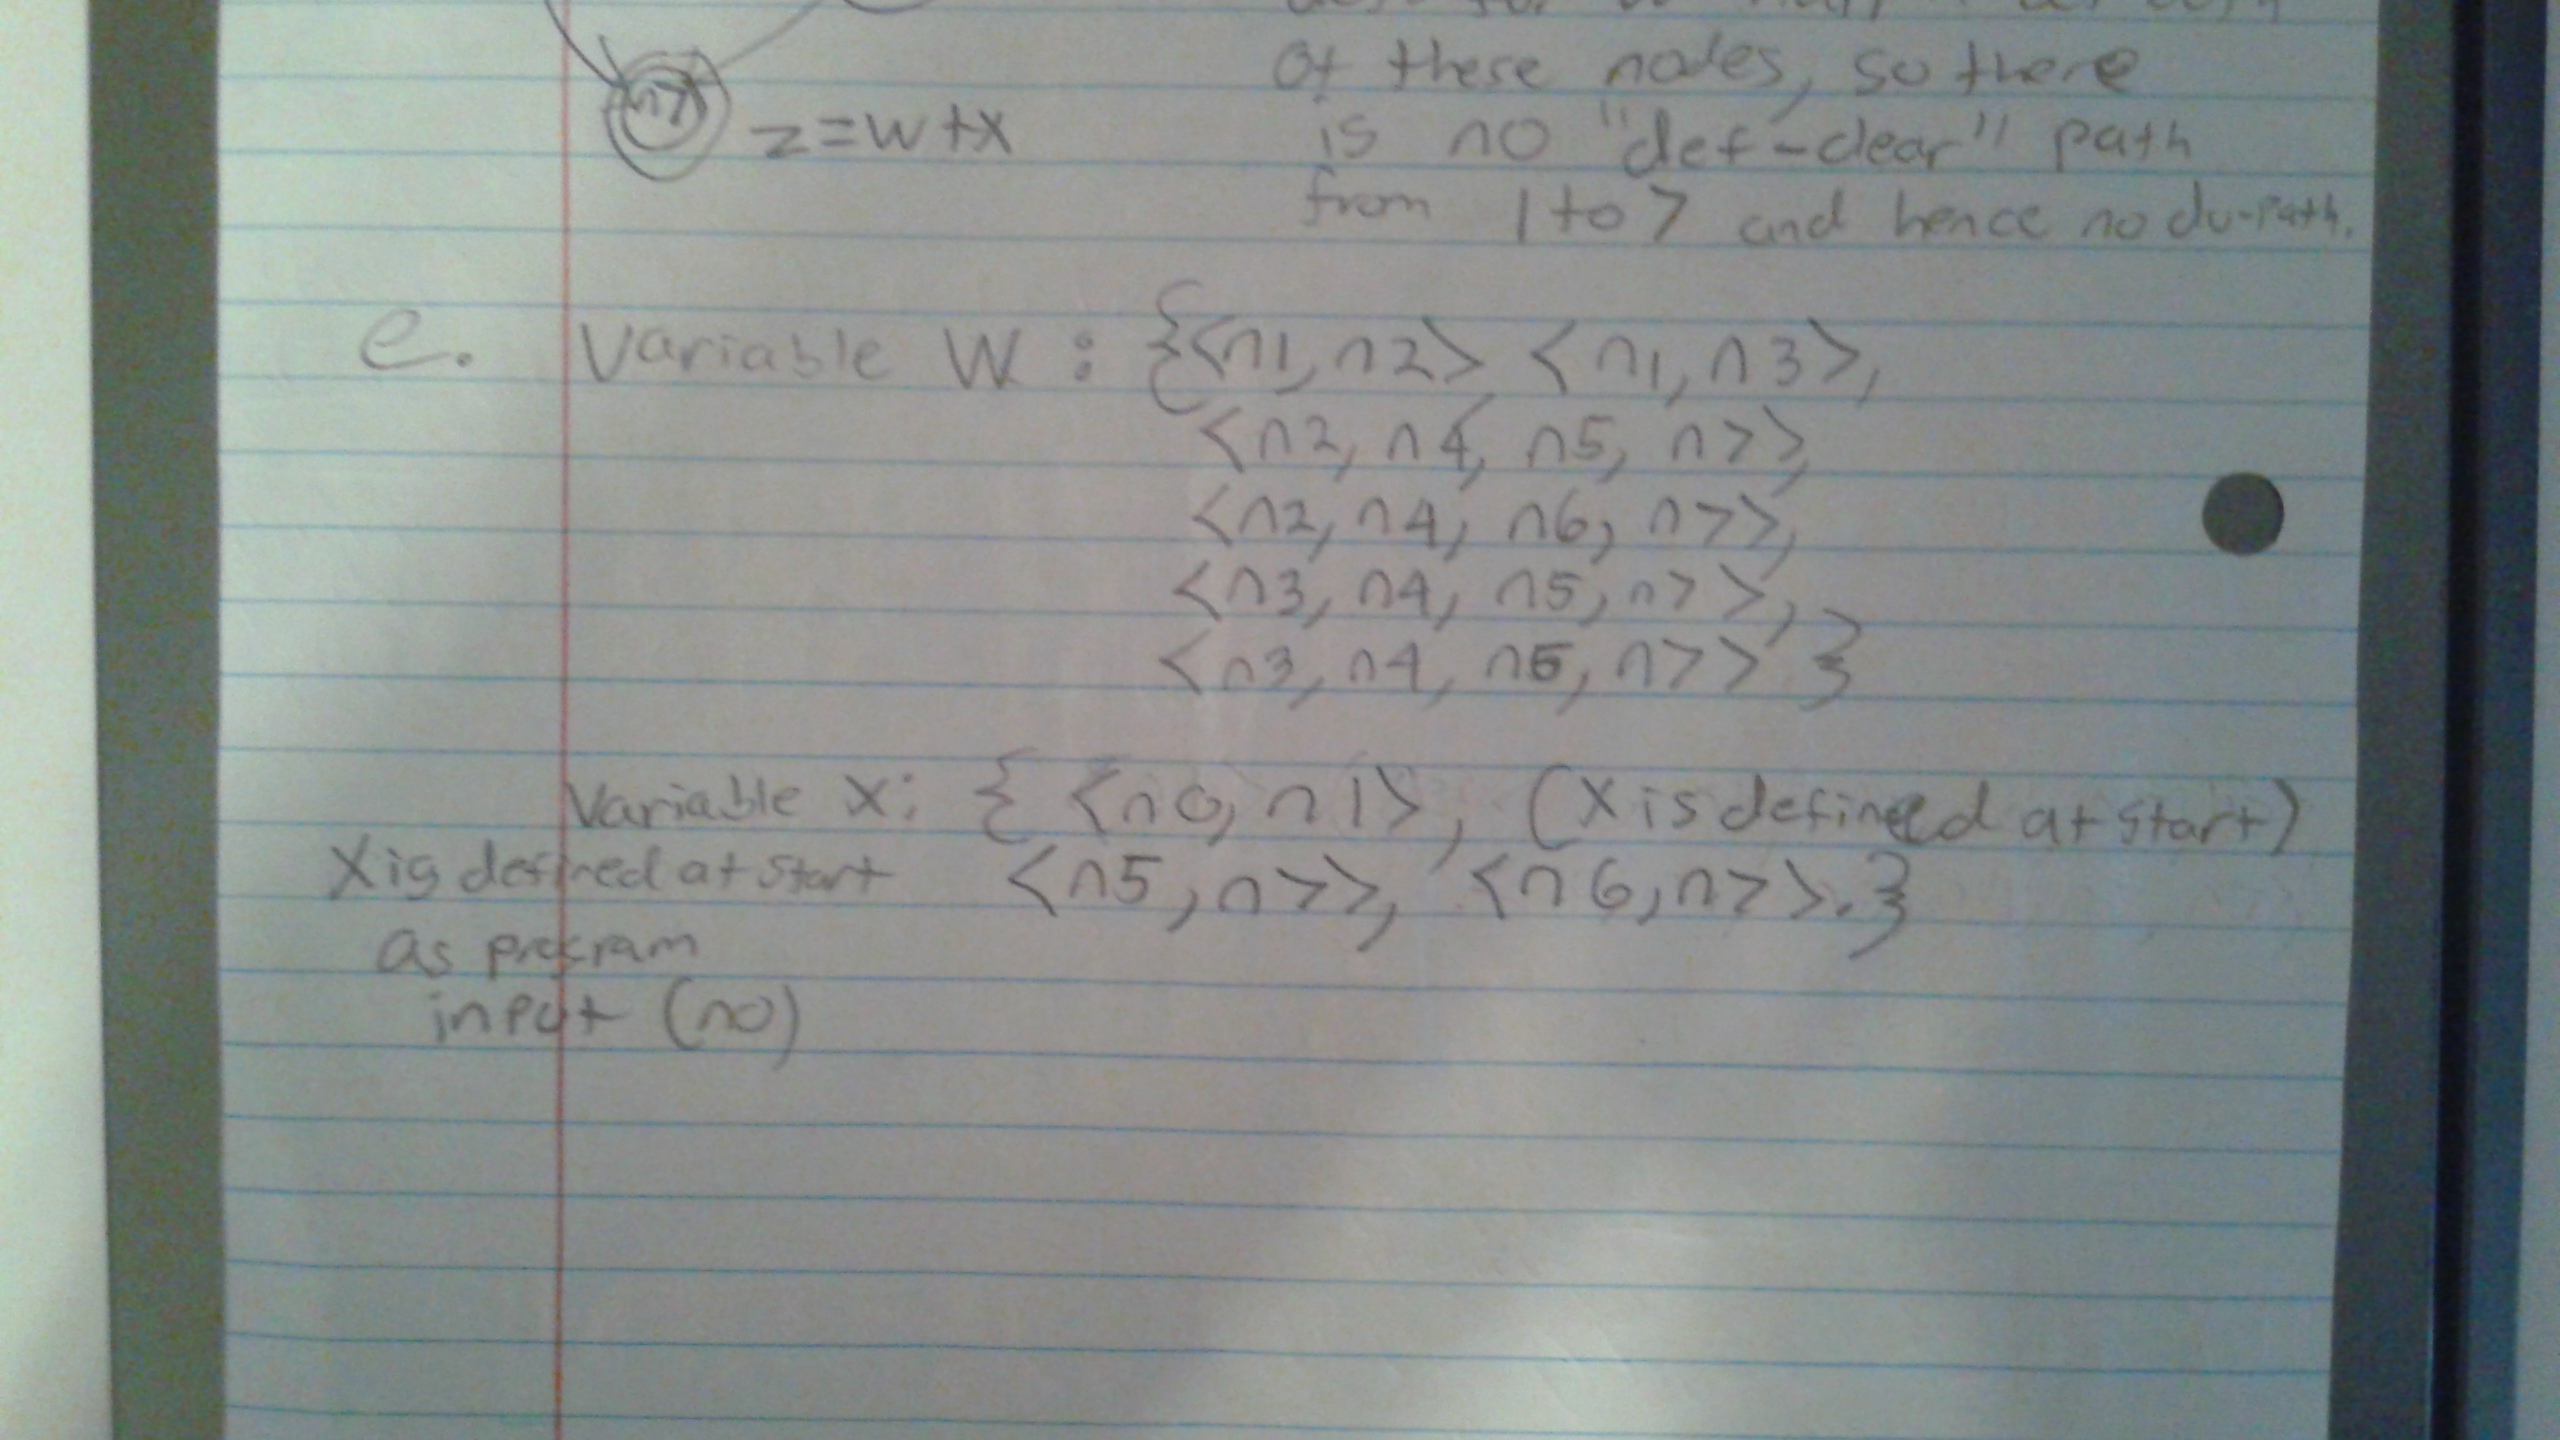 of these nodes, so there
is no "def-clear" path
from 1 to 7 and hence no du-path.
n7
z=w+x
e. Variable W : {<n1, n2> <n1, n3>,
<n2, n4, n5, n7>,
<n2, n4, n6, n7>,
<n3, n4, n5, n7>,
<n3, n4, n5, n7> }
Variable X: { <n0, n1>, (x is defined at start)
X is defined at start <n5, n7>, <n6, n7>. }
as program
input (n0)